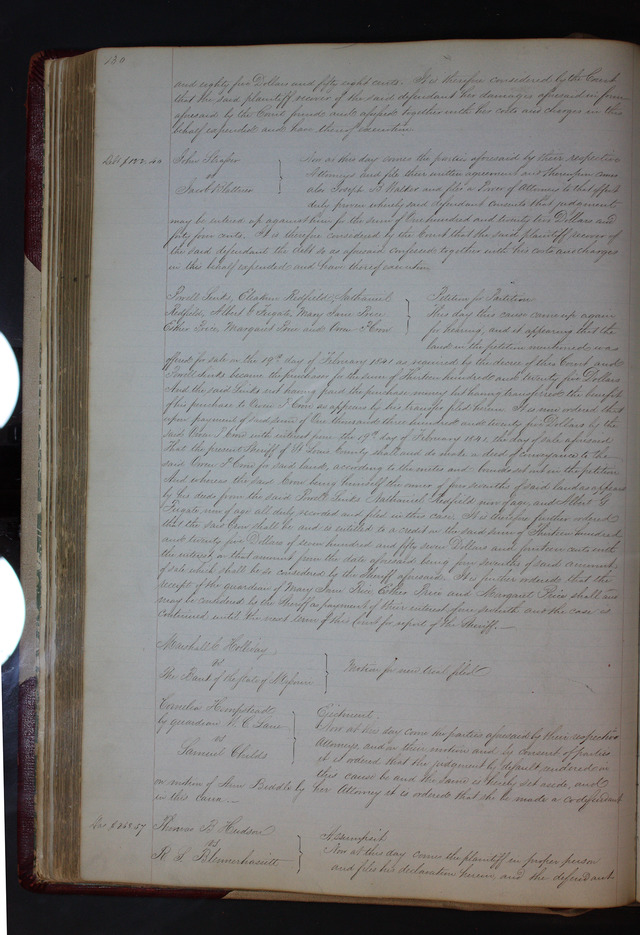 130
and eighty five Dollars and fifty eight cents. It is therefore considered by the Court
that the said plaintiff recover of the said defendant his damages aforesaid in form
aforesaid by the Court found and assessed together with his costs and charges in this
behalf expended and have thereof execution
Debt $122.40 John
vs
Jacob
Now at this day comes the parties aforesaid by their respective
Attorneys and file their written agreement and thereupon comes
also Joseph B Walker and files a Power of Attorney to that effect
duly proven whereby said defendant consents that judgment
may be entered up against him for the sum of One hundred and twenty two Dollars and
fifty four cents. It is therefore considered by the Court that the said plaintiff recover of
the said defendant the debt so as aforesaid confessed together with his costs and charges
in this behalf expended and have thereof execution
Powell Sinks, Eleazer Redfield, Nathaniel
Redfield, Albert G Fugate, Mary Jane Price
Esther Price Margaret Price and Owen Finn
Petition for Partition
This day this cause came up again
for hearing, and it appearing that the
land in the petition mentioned was
offered for sale on the 19th day of February 1841 as required by the decree of this Court and
Powell Sinks became the purchaser for the sum of Thirteen hundred and twenty five Dollars
And the said Sinks not having paid the purchase money but having transferred the benefit
of his purchase to Owen Finn as appears by his transfer filed herein. It is now ordered that
upon payment of said sum of One thousand three hundred and twenty five Dollars by the
said Owen Finn with interest from the 19th day of February 1841, the day of sale aforesaid
That the present Sheriff of St Louis County shall and do make a deed of conveyance to the
said Owen Finn for said land, according to the metes and bounds set out in the petition
And whereas the said Finn being himself the owner of four sevenths of said land as appears
by the deeds from the said Powell Sinks Nathaniel Redfield now of age and Albert G
Fugate now of age all duly recorded and filed in this case. It is therefore further ordered
that the said Finn shall be and is entitled to a credit on the said sum of Thirteen hundred
and twenty five Dollars of seven hundred and fifty seven Dollars and fourteen cents with
the interest on that amount from the date aforesaid being four sevenths of said amount
of sale which shall be so considered by the Sheriff aforesaid. It is further ordered that the
receipt of the guardian of Mary Jane Price Esther Price and Margaret Price shall and
may be considered by the Sheriff as payment of their interest of one seventh and the case is
continued until the next term of this Court for report of the Sheriff.
Marshall C Holliday
vs
The Bank of the State of Missouri
Motion for new trial filed
Cornelia Hempstead
by guardian W. C Lane
vs
Samuel Childs
Ejectment.
Now at this day come the parties aforesaid by their respective
Attorneys, and on their motion and by consent of parties
it is ordered that the judgment by default rendered in
this cause be and the same is hereby set aside, and
on motion of Ann Biddle by her Attorney it is ordered that she be made a co defendant
in this cause
$268.57 Thomas B Hudson
vs
R. S. Blennerhassett
Assumpsit
Now at this day comes the plaintiff in proper person
and files his declaration herein, and the defendant